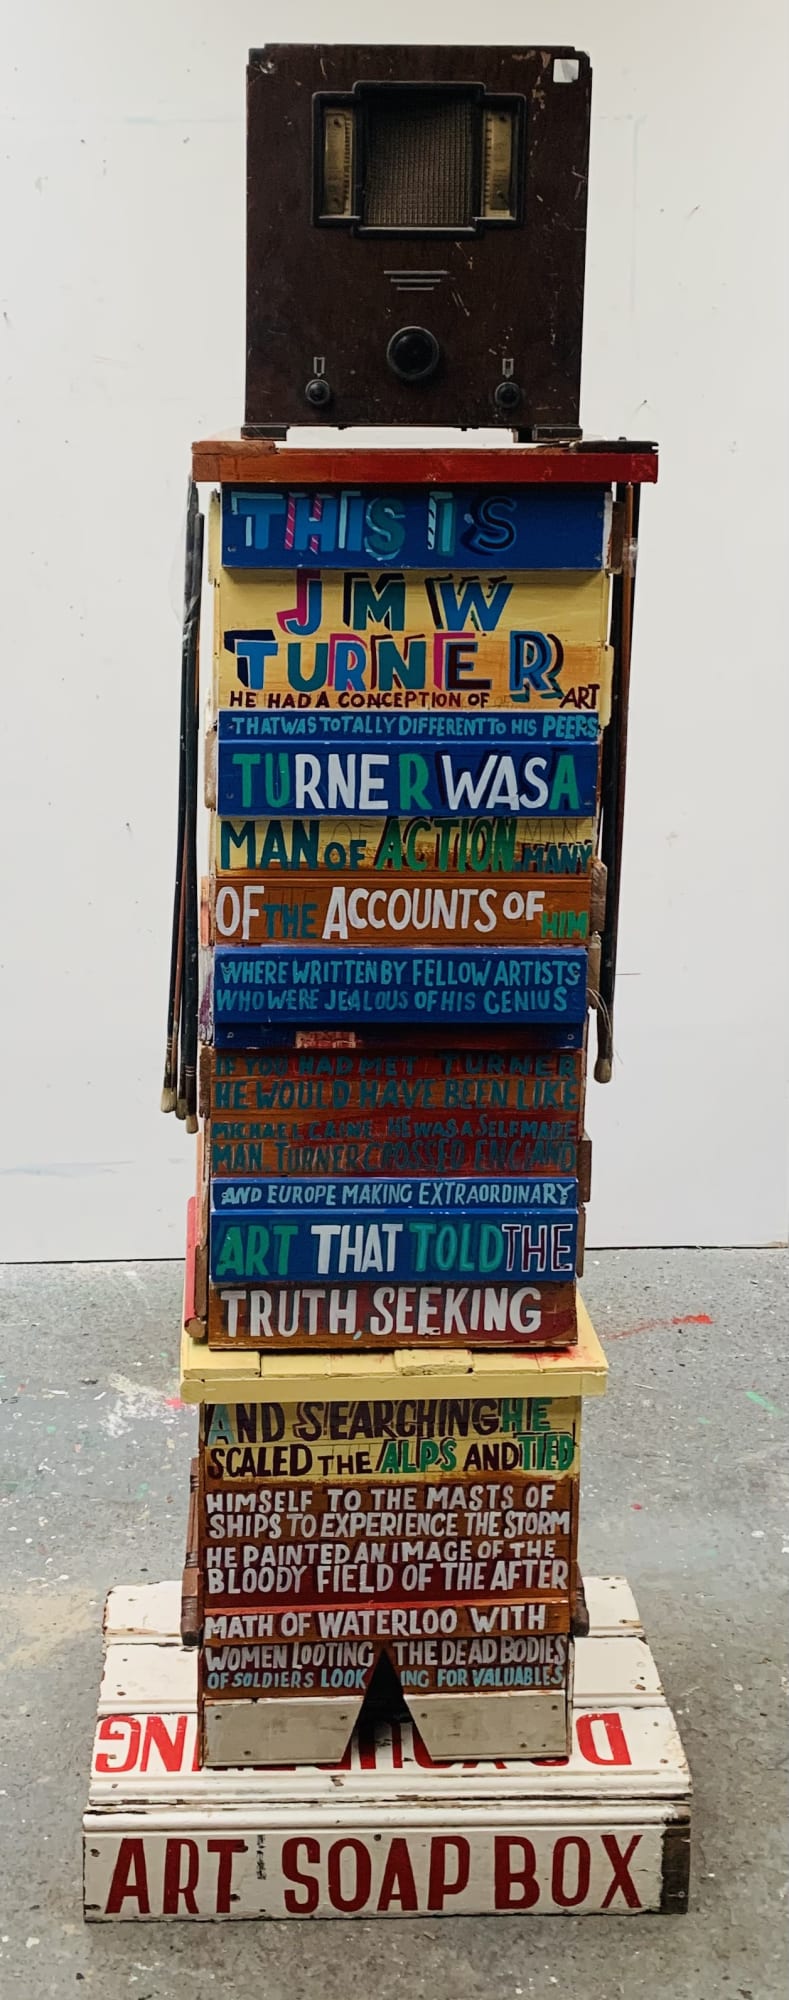 THIS IS
JMW
TURNER
HE HAD A CONCEPTION OF ART
THAT WAS TOTALLY DIFFERENT TO HIS PEERS
TURNER WAS A
MAN OF ACTION. MANY
OF THE ACCOUNTS OF HIM
WHERE WRITTEN BY FELLOW ARTISTS
WHO WERE JEALOUS OF HIS GENIUS
IF YOU HAD MET TURNER
HE WOULD HAVE BEEN LIKE
MICHAEL CAINE. HE WAS A SELF MADE
MAN. TURNER CROSSED ENGLAND
AND EUROPE MAKING EXTRAORDINARY
ART THAT TOLD THE
TRUTH, SEEKING
AND SEARCHING HE
SCALED THE ALPS AND TIED
HIMSELF TO THE MASTS OF
SHIPS TO EXPERIENCE THE STORM
HE PAINTED AN IMAGE OF THE
BLOODY FIELD OF THE AFTER
MATH OF WATERLOO WITH
WOMEN LOOTING THE DEAD BODIES
OF SOLDIERS LOOK ING FOR VALUABLES
ART SOAP BOX